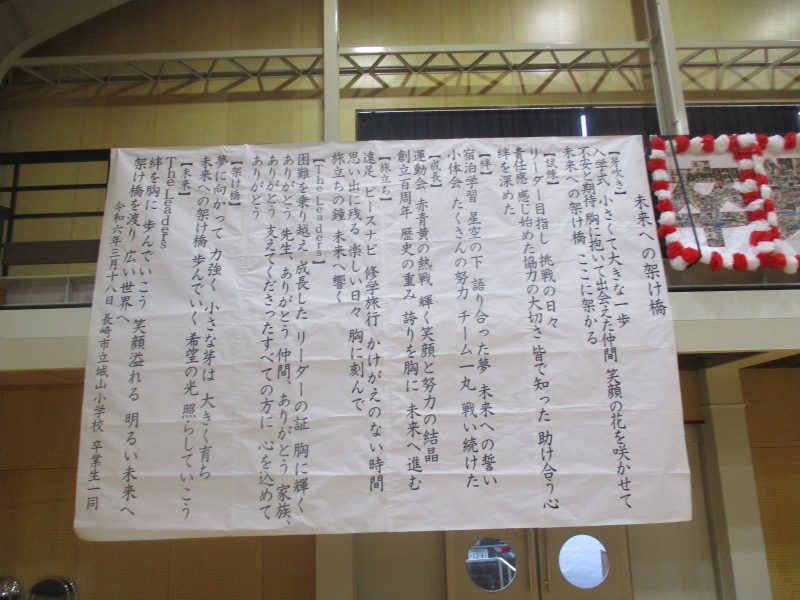 未来への架け橋
【芽吹き】
入学式 小さくて大きな一歩
不安と期待 胸に抱いて出会えた仲間 笑顔の花を咲かせて
未来への架け橋 ここに架かる
【試煙】
リーダー目指し 挑戦の日々
責任感 感じ始めた協力の大切さ 皆で知った 助け合う心
絆を深めた
【絆】
宿泊学習 星空の下 語り合った夢 未来への誓い
小体会 たくさんの努力 チーム一丸 戦い続けた
【成長】
運動会 赤青黄の熱戦 輝く笑顔と努力の結晶
創立百周年 歴史の重み 誇りを胸に 未来へ進む
【旅立ち】
遠足 ピースナビ 修学旅行 かけがえのない時間
思い出に残る 楽しい日々 胸に刻んで
旅立ちの鐘 未来へ響く
【The Leaders】
困難を乗り越え 成長した リーダーの証 胸に輝く
ありがとう 先生、ありがとう 仲間、ありがとう 家族、
ありがとう 支えてくださったすべての方に 心を込めて
ありがとう
【架け橋】
夢に向かって 力強く 小さな芽は 大きく育ち
未来への架け橋 歩んでいく 希望の光 照らしていこう
【未来】
The Leaders
絆を胸に 歩んでいこう 笑顔溢れる 明るい未来へ
架け橋を渡り 広い世界へ
令和六年三月十八日 長崎市立城山小学校 卒業生一同